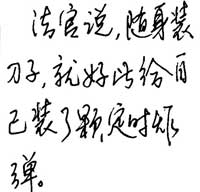 法官说,随身装
刀子,就好比给自
己装了颗定时炸
弹。